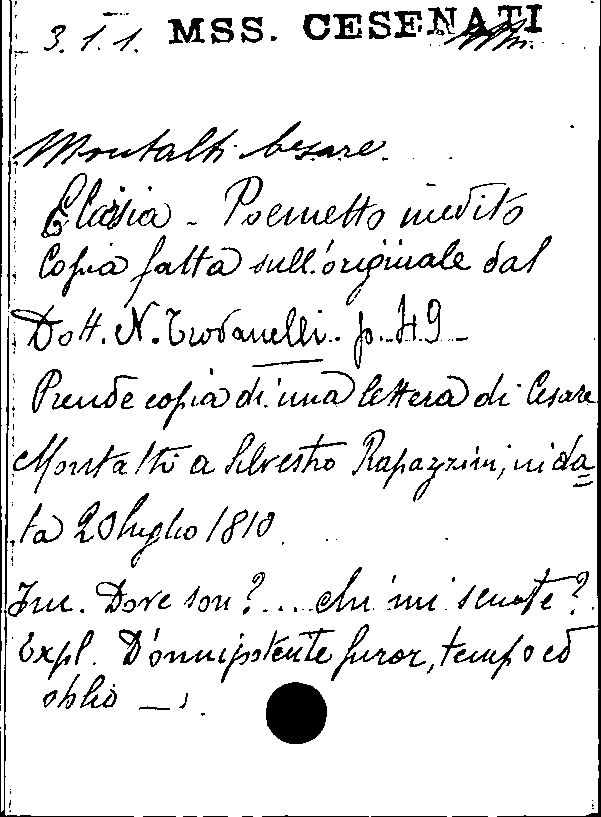 3.1.1. MSS. CESENATI
Montalti Cesare.
Elaisia - Poemetto inedito
Copia fatta sull'originale dal
Dott. N. Trovanelli. p. 49
Prende copia di una lettera di Cesare
Montalti a Silvestro Rapazzini, in da=
ta 20 luglio 1810
Inc. Dove son?... chi mi scuote?
Expl. D'onnipotente furor, tempo ed
oblio —